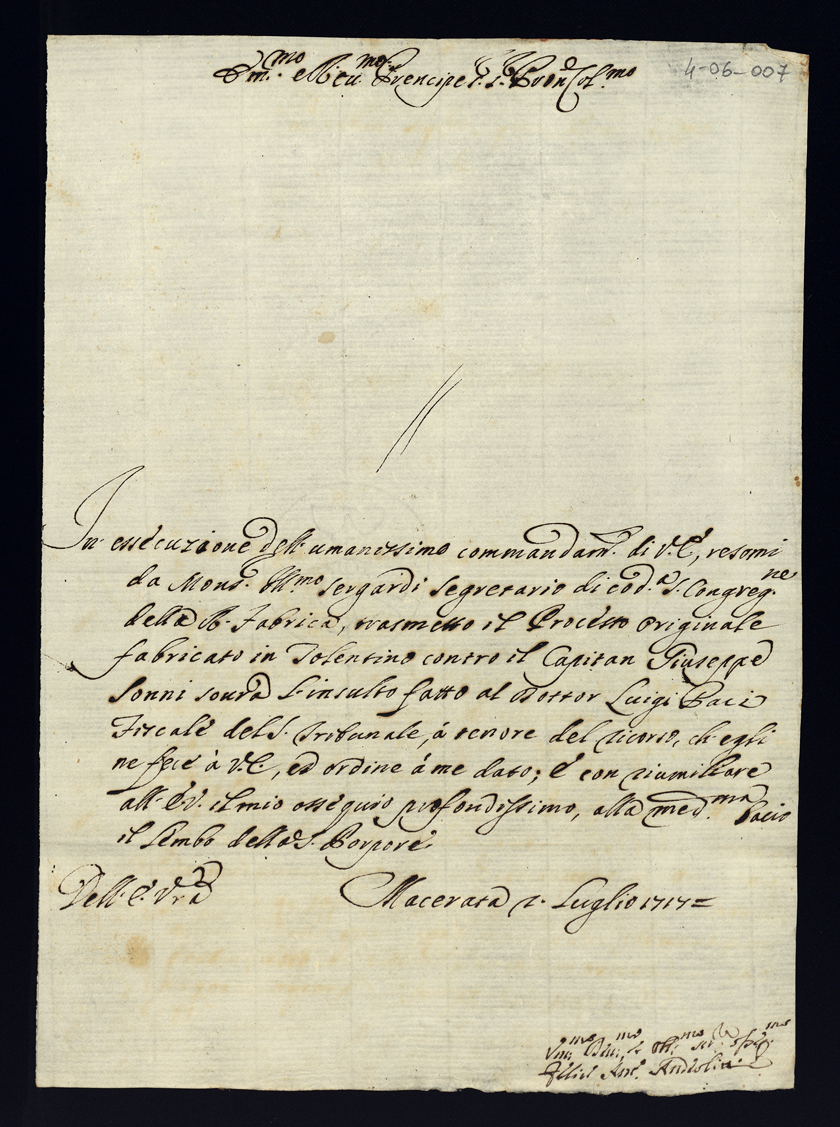 Em.mo e Reu.mo Prencipe S. P.ron Col.mo
4-06-007
In essecuzione dell' umanissimo commandam.to di V.E, resomi
da Mons.r Ill.mo Sergardi Segretario di cod.a S. Congreg.ne
della R. Fabrica, trasmetto il Processo originale
fabricato in Tolentino contro il Capitan Giuseppe
Sonni soura l'insulto fatto al Dottor Luigi Paci
Fiscale del S. Tribunale, à tenore del ricorso, ch'egli
ne fece à V.E, ed ordine à me dato; E con riumiliare
all' E.V. il mio ossequio profondissimo, alla med.ma bacio
il Lembo della S. Porpore.
Dell' E. Vra
Macerata 2. Luglio 1717=
Vm.mo Deu.mo et Obl.mo Ser.
Felice Ant.o